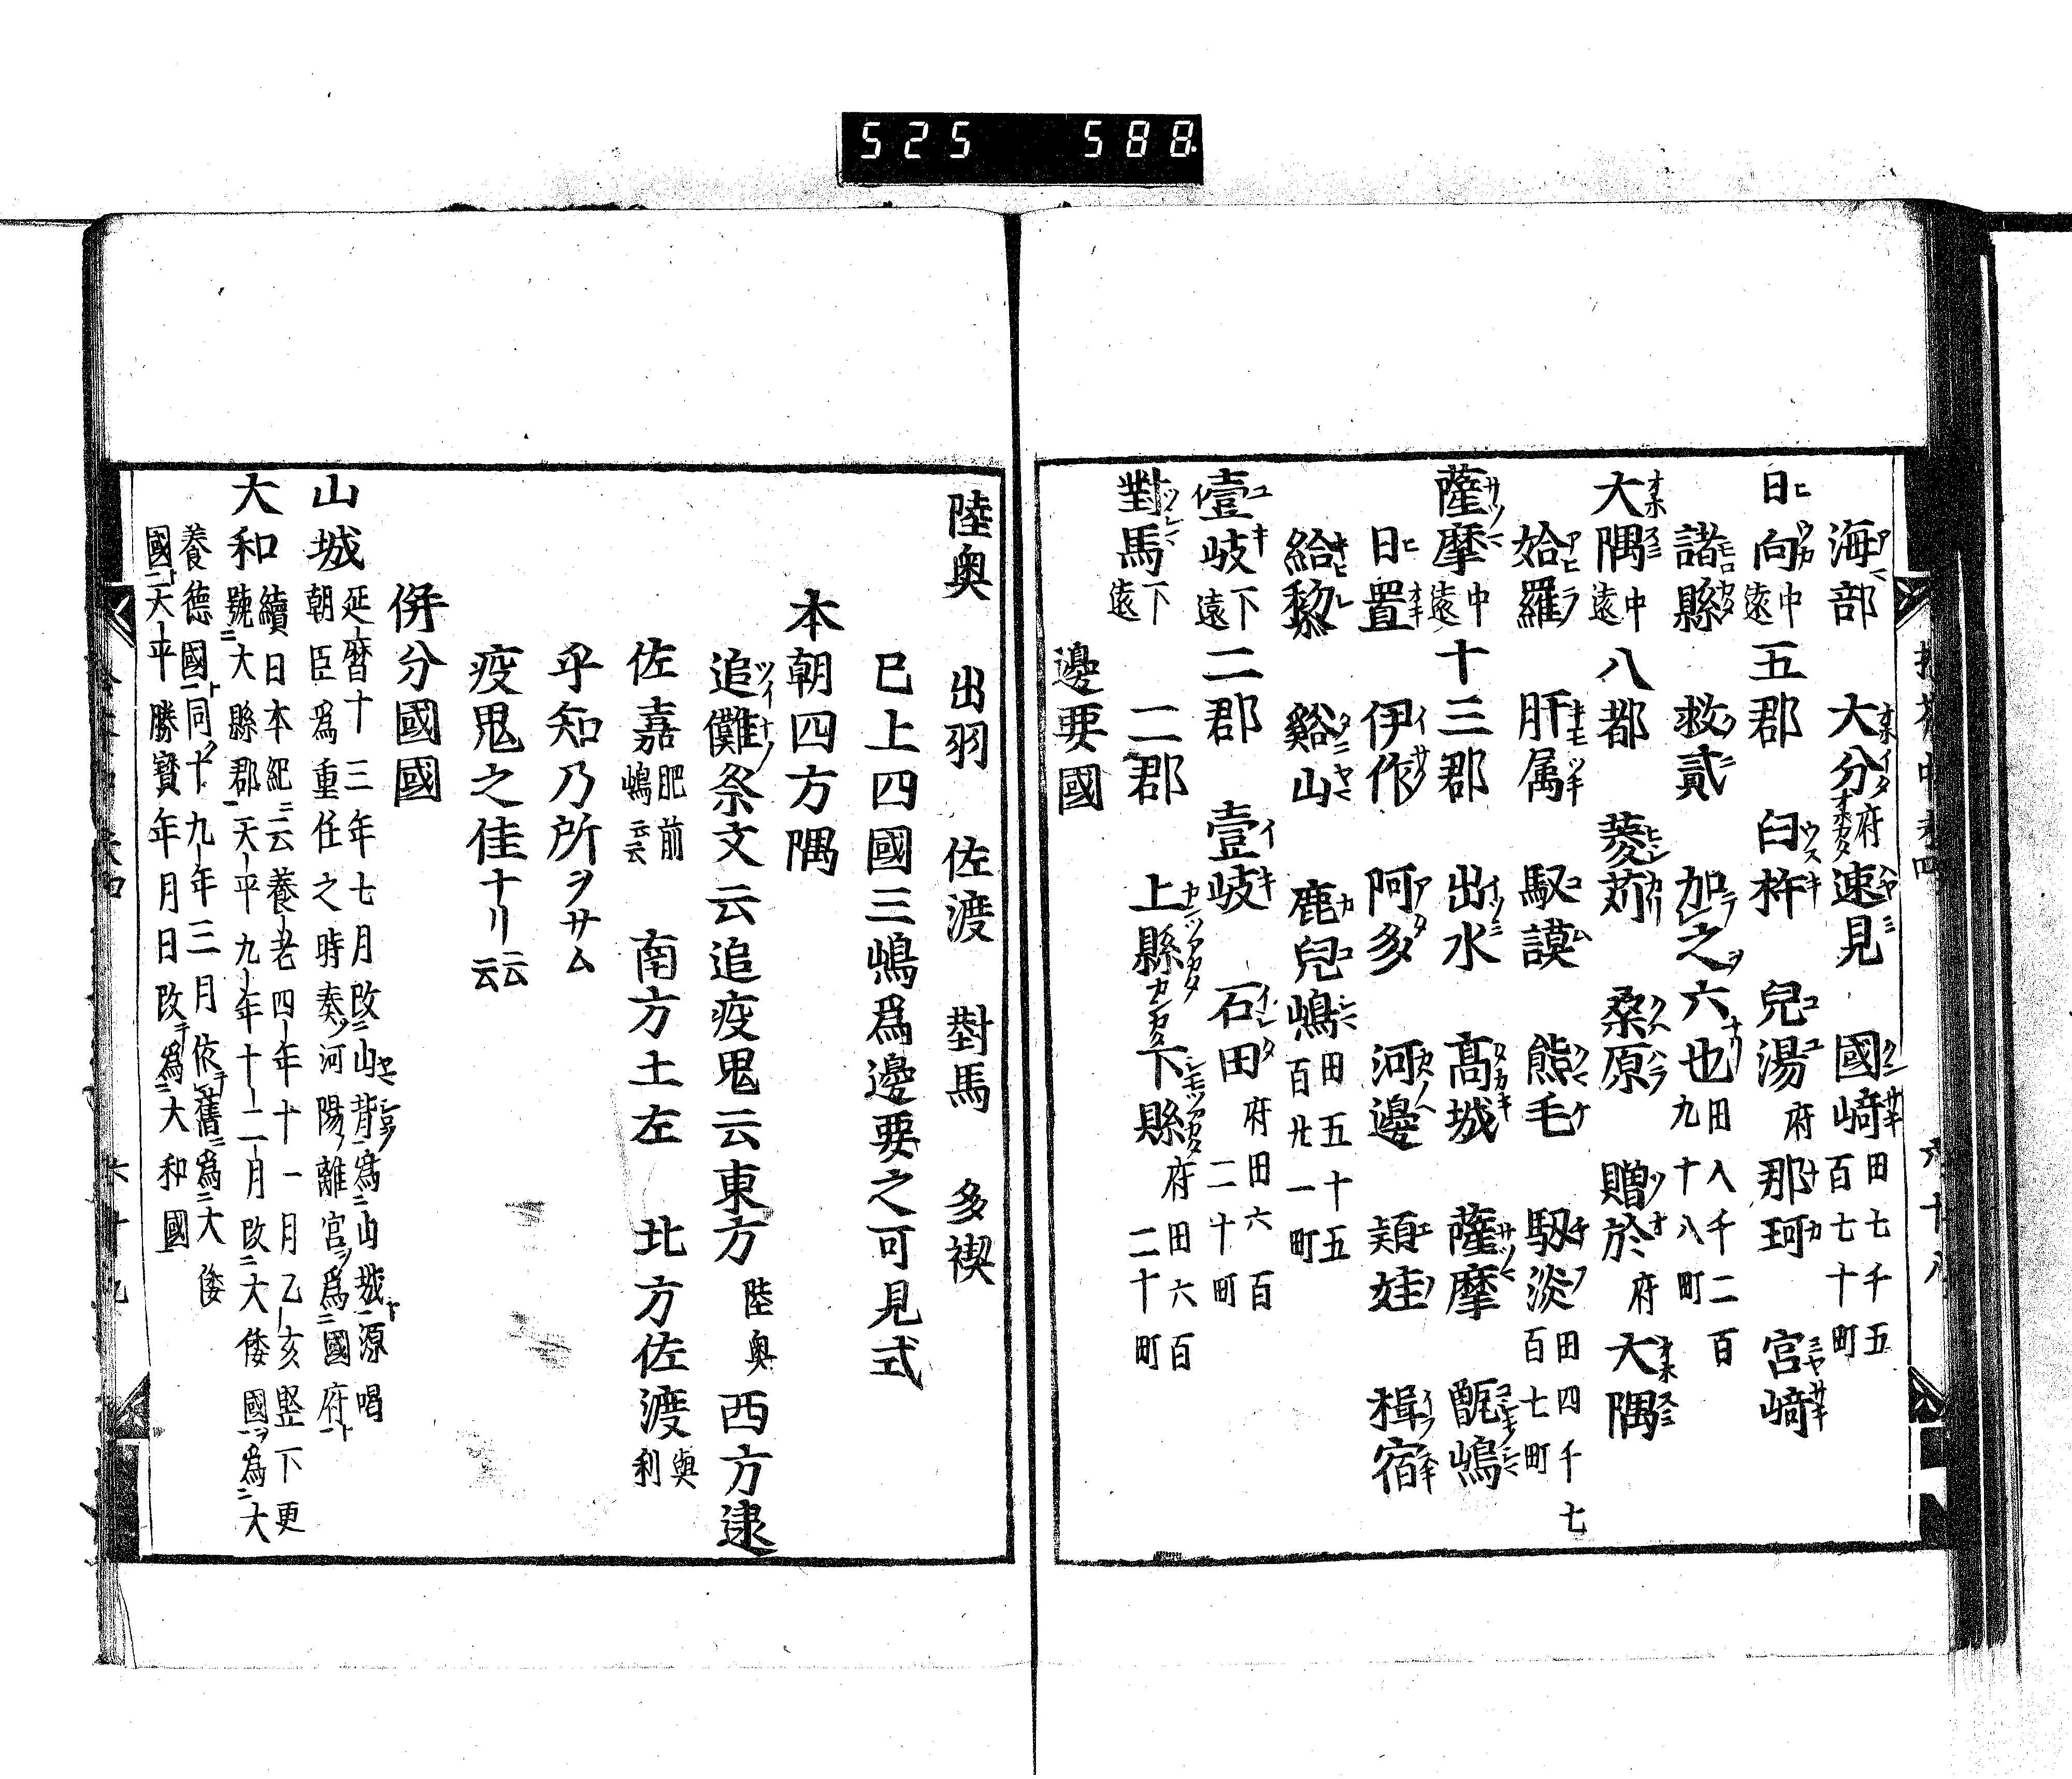 525 588
海部 大分府 速見 國﨑田七千五百七十町
日向中遠 五郡 臼杵 兒湯府 那珂 宮﨑
諸縣 救貳 加之六也田八千二百九十八町
大隅中遠 八郡 菱苅 桑原 贈於府 大隅
姶羅 肝属 馭謨 熊毛 馭淡田四千七百七町
薩摩中遠 十三郡 出水 髙城 薩摩 甑嶋
日置 伊作 阿多 河邊 頴娃 揖宿
給黎 谿山 鹿兒嶋田五十五百廿一町
壹岐下遠 二郡 壹岐 石田府田六百二十町
對馬下遠 二郡 上縣 下縣府田六百二十町
邊要國
陸奥 出羽 佐渡 對馬 多禊
已上四國三嶋爲邊要之可見式
本朝四方隅
追儺祭文云追疫鬼云東方陸奥 西方逮
佐嘉肥前嶋云云 南方土左 北方佐渡與利
乎知乃所ヲサム
疫鬼之佳十リ云云
併分國國
山城延暦十三年七月改山背爲山城源唱朝臣爲重任之時奏河陽離宮爲國府
大和續日本紀云養老四年十一月乙亥竪下更號大縣郡天平九年十二月改大倭國爲大
養德國同十九年三月依舊爲大倭國天平勝寳年月日改爲大和國
六十九